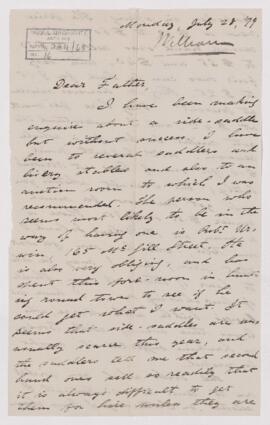 Monday, July 28, '79
William
Dear Father,
I have been making
enquiries about a side-saddle
but without success. I have
been to several saddlers and
livery stables and also to an
auction room to which I was
recommended. The person who
seems most likely to be in the
way of having one is Robt Ir-
win, 165 McGill Street. He
is also very obliging, and has
spent this fore-noon in hunt-
ing round town to see if he
could get what I want. It
seems that side-saddles are un-
usually scarce this year, and
the saddlers tell me that second
hand ones sell so readily that
it is always difficult to get
them for hire unless they are